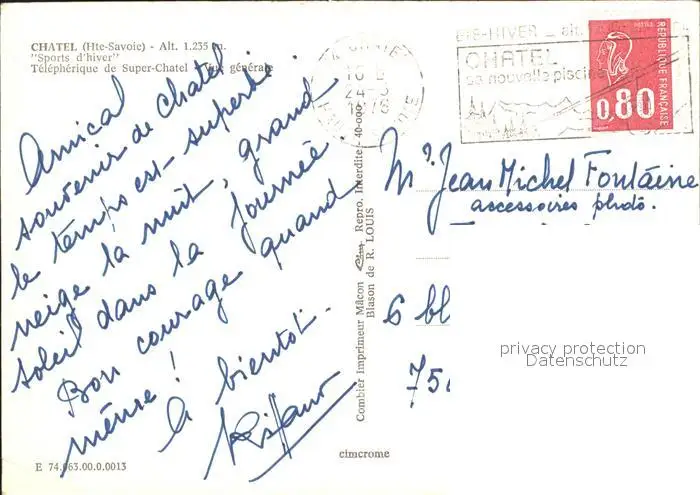 CHATEL (Hte-Savoie) - Alt. 1.235 m.
"Sports d'hiver"
Téléphérique de Super-Chatel - Vue générale
Amical
souvenir de Chatel
le temps est superbe
neige la nuit, grand
soleil dans la journée.
Bon courage quand
même !
à bientôt.
E 74.063.00.0.0013
Combier Imprimeur Mâcon Cim Repro. Interdite - 40-000
Blason de R. LOUIS
cimcrome
ETE-HIVER
CHATEL
sa nouvelle piscine
POSTES
REPUBLIQUE FRANÇAISE
0,80
Mr Jean Michel Fontaine
accessoires photo.
6 bl
75
privacy protection
Datenschutz